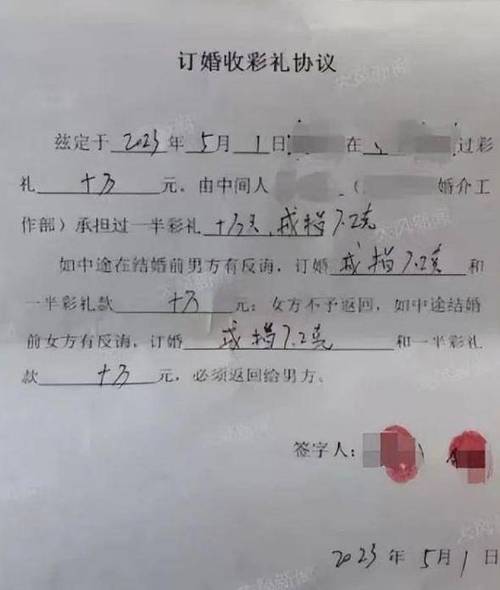 订婚收彩礼协议
兹定于 2023 年 5 月 1 日 在 过彩
礼 十万 元，由中间人 （ 婚介工
作部）承担过一半彩礼 十万元，戒指7.2克
如中途在结婚前男方有反诲，订婚 戒指7.2克 和
一半彩礼款 十万 元；女方不予返回，如中途结婚
前女方有反诲，订婚 戒指7.2克 和一半彩礼
款 十万 元，必须返回给男方。
签字人：
2023 年 5 月 1 日